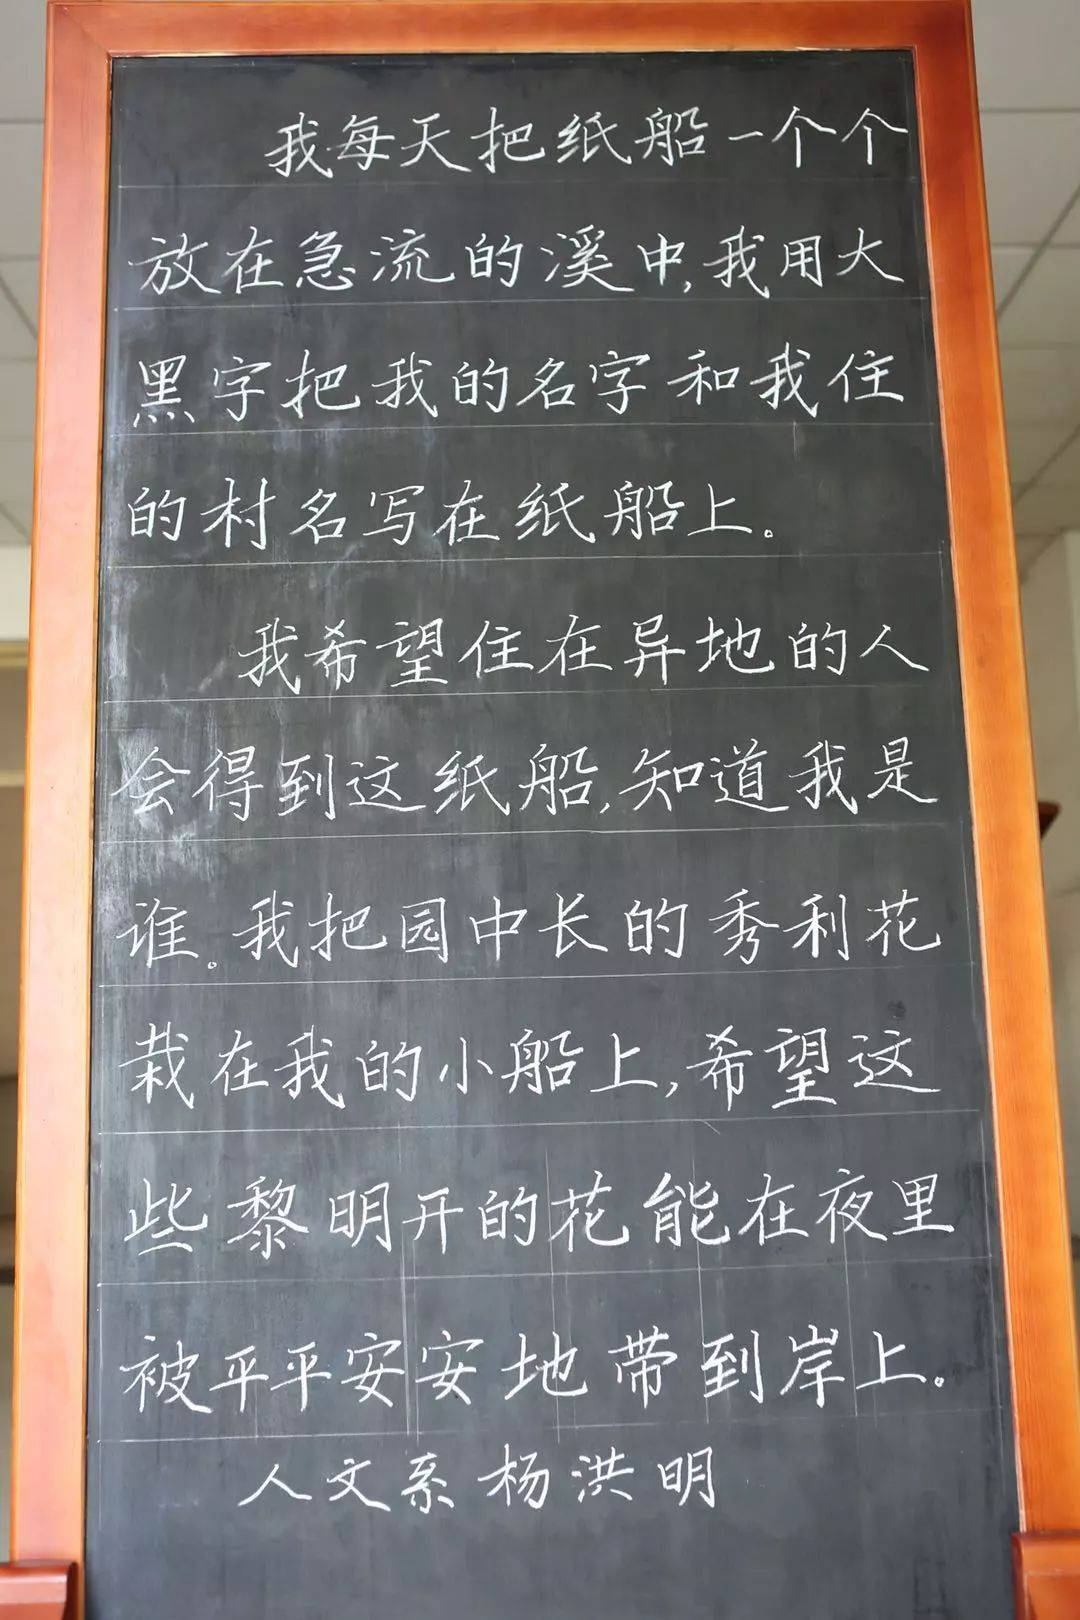 我每天把纸船一个个
放在急流的溪中,我用大
黑字把我的名字和我住
的村名写在纸船上。
我希望住在异地的人
会得到这纸船,知道我是
谁。我把园中长的秀利花
栽在我的小船上,希望这
些黎明开的花能在夜里
被平平安安地带到岸上。
人文系杨洪明